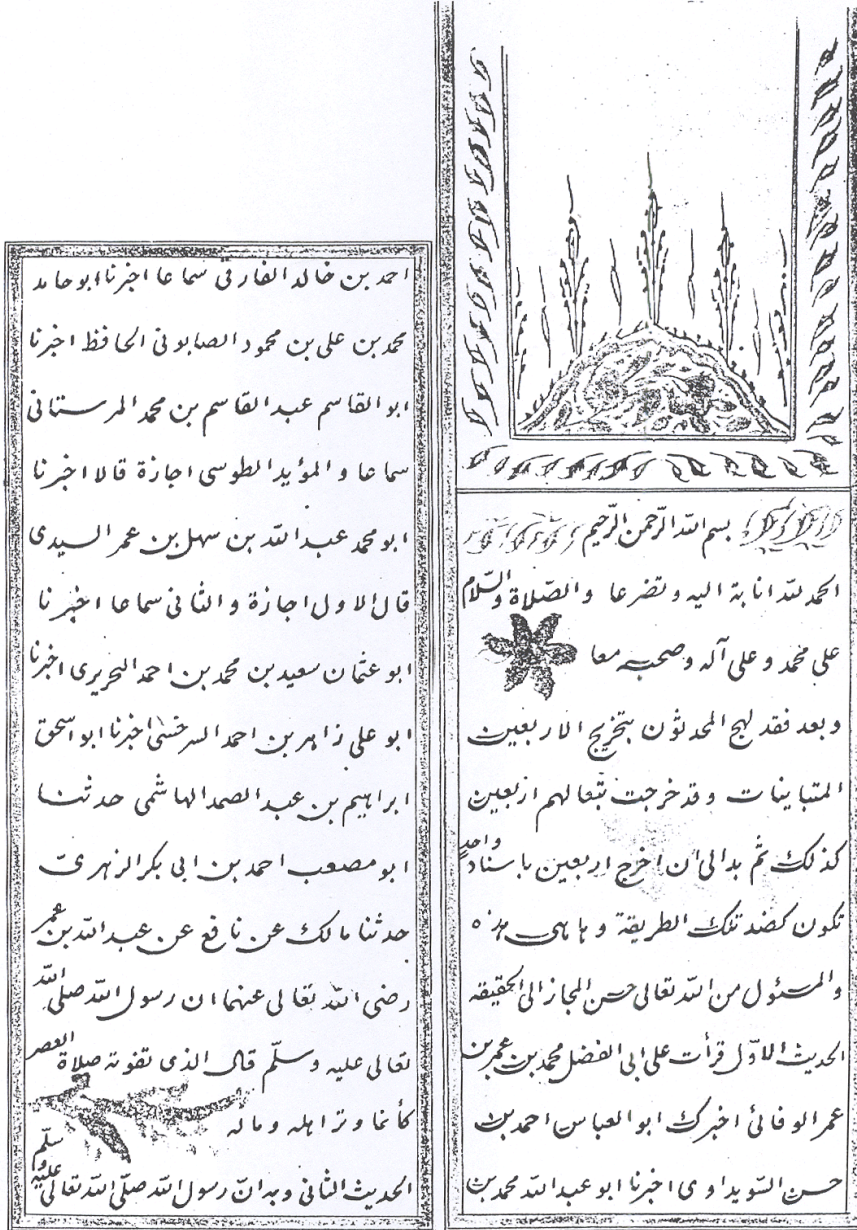 بسم الله الرّحمن الرّحيم
الحمد لله انابة اليه وتضرعا والصّلاة والسّلام
على محمد وعلى آله وصحبه معا
وبعد فقد لهج المحدثون بتخريج الاربعين
المتباينات وقد خرجت تبعا لهم اربعين
كذلك ثم بدا لى ان اخرج اربعين باسناد واحد
تكون كضد تلك الطريقة وها هى هذه
والمسئول من الله تعالى حسن المجاز الى الحقيقه
الحديث الاوّل قرأت على ابى الفضل محمد بن عمر بن
عمر الوفائى اخبرك ابو العباس احمد بن
حسن السّويداوى اخبرنا ابو عبد الله محمد بن
احمد بن خالد الفارقى سماعا اخبرنا ابو حامد
محمد بن على بن محمود الصابونى الحافظ اخبرنا
ابو القاسم عبد القاسم بن محمد المرستانى
سماعا والمؤيد الطوسى اجازة قالا اخبرنا
ابو محمد عبد الله بن سهل بن عمر السيدى
قال الاول اجازة والثانى سماعا اخبرنا
ابو عثمان سعيد بن محمد بن احمد البحريرى اخبرنا
ابو على زاهر بن احمد السرخسى اخبرنا ابو اسحق
ابراهيم بن عبد الصمد الهاشمى حدثنا
ابو مصعب احمد بن ابى بكر الزهرىّ
حدثنا مالك عن نافع عن عبد الله بن عمر
رضى الله تعالى عنهما ان رسول الله صلى الله
تعالى عليه وسلّم قال الذى تفوته صلاة العصر
كأنما وتر اهله وماله
الحديث الثانى وبه انّ رسول الله صلّى الله تعالى عليه وسلّم